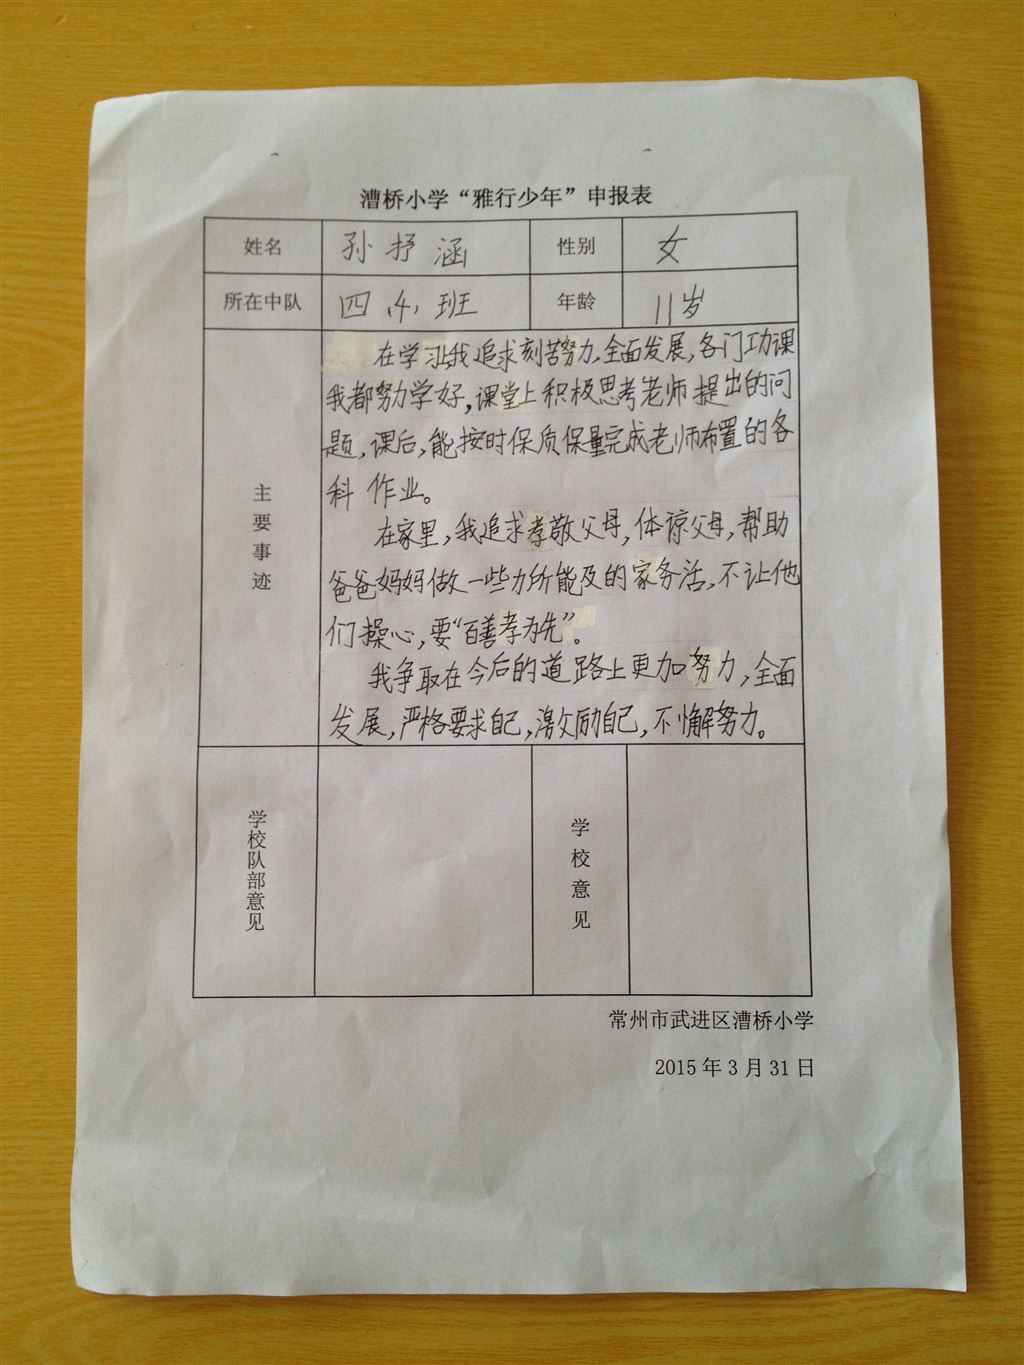 漕桥小学“雅行少年”申报表
姓名 孙抒涵 性别 女
所在中队 四（4）班 年龄 11岁
主要事迹
在学习上,我追求刻苦努力,全面发展,各门功课
我都努力学好,课堂上积极思考老师提出的问
题,课后,能按时保质保量完成老师布置的各
科作业。
在家里,我追求孝敬父母,体谅父母,帮助
爸爸妈妈做一些力所能及的家务活,不让他
们操心,要“百善孝为先”。
我争取在今后的道路上更加努力,全面
发展,严格要求自己,激励自己,不懈努力。
学校队部意见 学校意见
常州市武进区漕桥小学
2015年3月31日